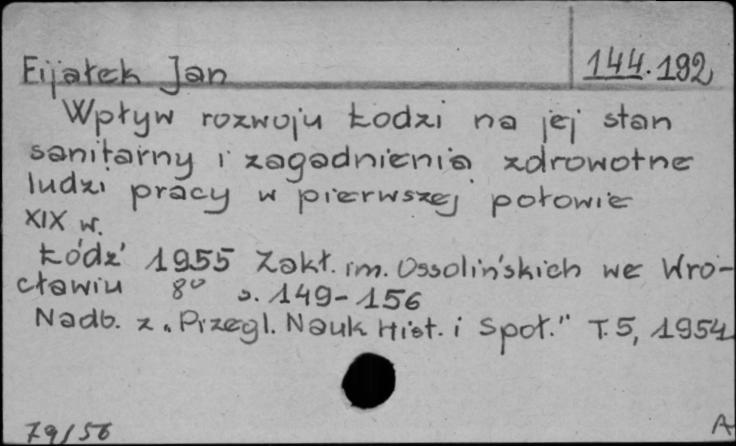 Fijałek Jan 144.192
Wpływ rozwoju Łodzi na jej stan
sanitarny i zagadnienia zdrowotne
ludzi pracy w pierwszej połowie
XIX w.
Łódź 1955 Zakł. im. Ossolińskich we Wro-
cławiu 8° s. 149-156
Nadb. z „Przegl. Nauk Hist. i Społ." T. 5, 1954.
79/56 A